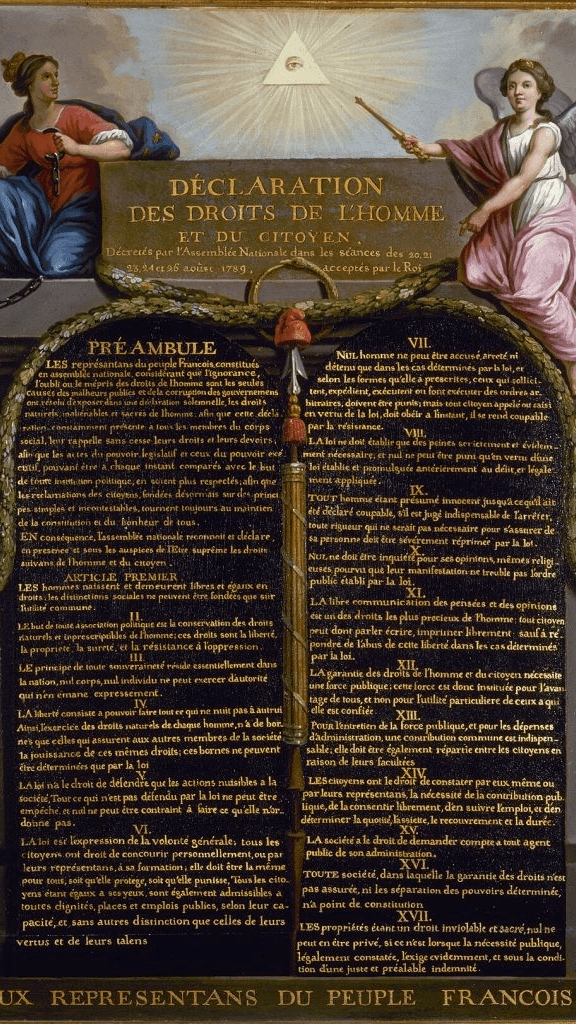 DÉCLARATION
DES DROITS DE L'HOMME
ET DU CITOYEN,
Décretés par l'Assemblée Nationale dans les séances des 20, 21
23, 24 et 26 août 1789, acceptés par le Roi
PRÉAMBULE
LES représentans du peuple François, constitués
en assemblée nationale, considérant que l'ignorance,
l'oubli ou le mépris des droits de l'homme sont les seules
causes des malheurs publics et de la corruption des gouvernemens
ont résolu d'exposer dans une déclaration solemnelle, les droits
naturels, inaliénables et sacrés de l'homme; afin que cette décla
ration, constamment présente a tous les membres du corps
social, leur rappelle sans cesse leurs droits et leurs devoirs;
afin que les actes du pouvoir législatif et ceux du pouvoir exé
cutif, pouvant être à chaque instant comparés avec le but
de toute institution politique, en soient plus respectés; afin que
les reclamations des citoyens, fondées désormais sur des princi
pes simples et incontestables, tournent toujours au maintien
de la constitution et du bonheur de tous.
EN conséquence, l'assemblée nationale reconnoit et déclare,
en presence et sous les auspices de l'Etre suprême les droits
suivans de l'homme et du citoyen.
ARTICLE PREMIER.
LES hommes naissent et demeurent libres et égaux en
droits; les distinctions sociales ne peuvent être fondées que sur
l'utilité commune.
II.
LE but de toute association politique est la conservation des droits
naturels et inprescriptibles de l'homme; ces droits sont la liberté,
la propriété, la sureté, et la résistance à l'oppression.
III.
LE principe de toute souveraineté réside essentiellement dans
la nation, nul corps, nul individu ne peut exercer d'autorité
qui n'en émane expressement.
IV.
LA liberté consiste a pouvoir faire tout ce qui ne nuit pas à autrui
Ainsi, l'exercice des droits naturels de chaque homme, n'a de bor-
nes que celles qui assurent aux autres membres de la société
la jouissance de ces mêmes droits; ces bornes ne peuvent
être déterminées que par la loi
V.
LA loi n'a le droit de défendre que les actions nuisibles a la
société, Tout ce qui n'est pas défendu par la loi ne peut être
empêché, et nul ne peut être contraint à faire ce qu'elle n'or-
donne pas.
VI.
LA loi est l'expression de la volonté générale; tous les
citoyens ont droit de concourir personnellement, ou par
leurs représentans, à sa formation; elle doit être la même
pour tous, soit qu'elle protege, soit qu'elle punisse, Tous les cito-
yens étant égaux a ses yeux, sont également admissibles a
toutes dignités, places et emplois publics, selon leur ca-
pacité, et sans autres distinction que celles de leurs
vertus et de leurs talens
VII.
NUL homme ne peut être accusé, arreté ni
détenu que dans les cas déterminés par la loi, et
selon les formes qu'elle a prescrites, ceux qui sollici-
tent, expédient, exécutent ou font exécuter des ordres ar-
bitraires, doivent être punis; mais tout citoyen appelé ou saisi
en vertu de la loi, doit obéir a l'instant, il se rend coupable
par la résistance.
VIII.
LA loi ne doit établir que des peines strictement et évidem-
ment nécessaire, et nul ne peut être puni qu'en vertu d'une
loi établie et promulguée antérierement au délit, et légale-
ment appliquée.
IX.
TOUT homme étant présumé innocent jusqu'a ce qu'il ait
été déclaré coupable, s'il est jugé indispensable de l'arrêter,
toute rigueur qui ne serait pas nécessaire pour s'assurer de
sa personne doit être sévérement réprimée par la loi.
X.
NUL ne doit être inquiété pour ses opinions, mêmes religi
euses pourvu que leur manifestation ne trouble pas l'ordre
public établi par la loi.
XI.
LA libre communication des pensées et des opinions
est un des droits les plus precieux de l'homme: tout citoyen
peut donc parler écrire, imprimer librement: sauf à ré-
pondre de l'abus de cette liberté dans les cas déterminés
par la loi.
XII.
LA garantie des droits de l'homme et du citoyen nécessite
une force publique; cette force est donc instituée pour l'avan-
tage de tous, et non pour l'utilité particuliere de ceux a qui
elle est confiée.
XIII.
POUR l'entretien de la force publique, et pour les dépenses
d'administration, une contribution commune est indispen-
sable; elle doit être également répartie entre les citoyens en
raison de leurs facultées
XIV.
LES citoyens ont le droit de constater par eux même ou
par leurs représentans, la nécessité de la contribution pub-
lique, de la consentir librement, d'en suivre l'emploi, et d'en
déterminer la quotité, l'assiette, le recouvrement et la durée.
XV.
LA société a le droit de demander compte a tout agent
public de son administration.
XVI.
TOUTE société, dans laquelle la garantie des droits n'est
pas assurée, ni les séparation des pouvoirs déterminée,
n'a point de constitution.
XVII.
LES propriétés étant un droit inviolable et sacré, nul ne
peut en être privé, si ce n'est lorsque la nécessité publique,
légalement constatée, l'exige evidemment, et sous la condi-
tion d'une juste et préalable indemnité.
UX REPRESENTANS DU PEUPLE FRANCOIS